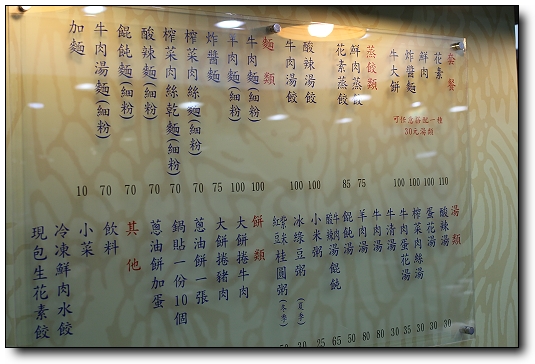 套餐
花素 110
鮮肉 100
炸醬麵 100
牛大餅 100
可任意搭配一種
30元湯類
蒸餃類
鮮肉蒸餃 75
花素蒸餃 85
酸辣湯餃 100
牛肉湯餃 100
麵類
牛肉麵(細粉) 100
羊肉麵(細粉) 100
炸醬麵 75
榨菜肉絲麵(細粉) 70
榨菜肉絲乾麵(細粉) 70
酸辣麵(細粉) 70
餛飩麵(細粉) 70
牛肉湯麵(細粉) 70
加麵 10
湯類
酸辣湯 30
蛋花湯 30
榨菜肉絲湯 30
牛肉蛋花湯 35
牛清湯 30
牛肉湯 80
羊肉湯 80
餛飩湯 50
酸辣牛肉湯餛飩 65
小米粥 25
冰綠豆粥(夏季) 30
紫米紅豆桂圓粥(冬季)
餅類
大餅捲牛肉
大餅捲豬肉
蔥油餅一張
鍋貼一份10個
蔥油餅加蛋
其他
飲料
小菜
冷凍鮮肉水餃
現包生花素餃